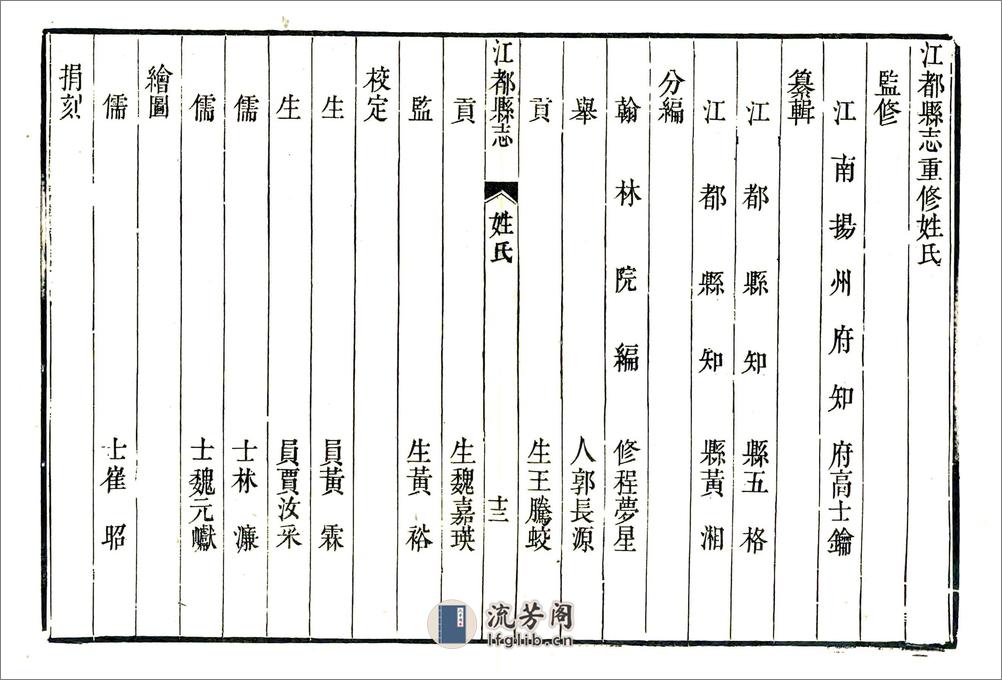 江都縣志重修姓氏
監修
江南揚州府知府高士鑰
纂輯
江都縣知縣五格
江都縣知縣黃湘
分編
翰林院編修程夢星
舉人郭長源
貢生王騰蛟
江都縣志 姓氏 十三
貢生魏嘉瑛
監生黃裕
校定
生員黃霖
生員賈汝采
儒士林濂
儒士魏元巘
繪圖
儒士崔昭
捐刻
流芳阁
lfglib.cn